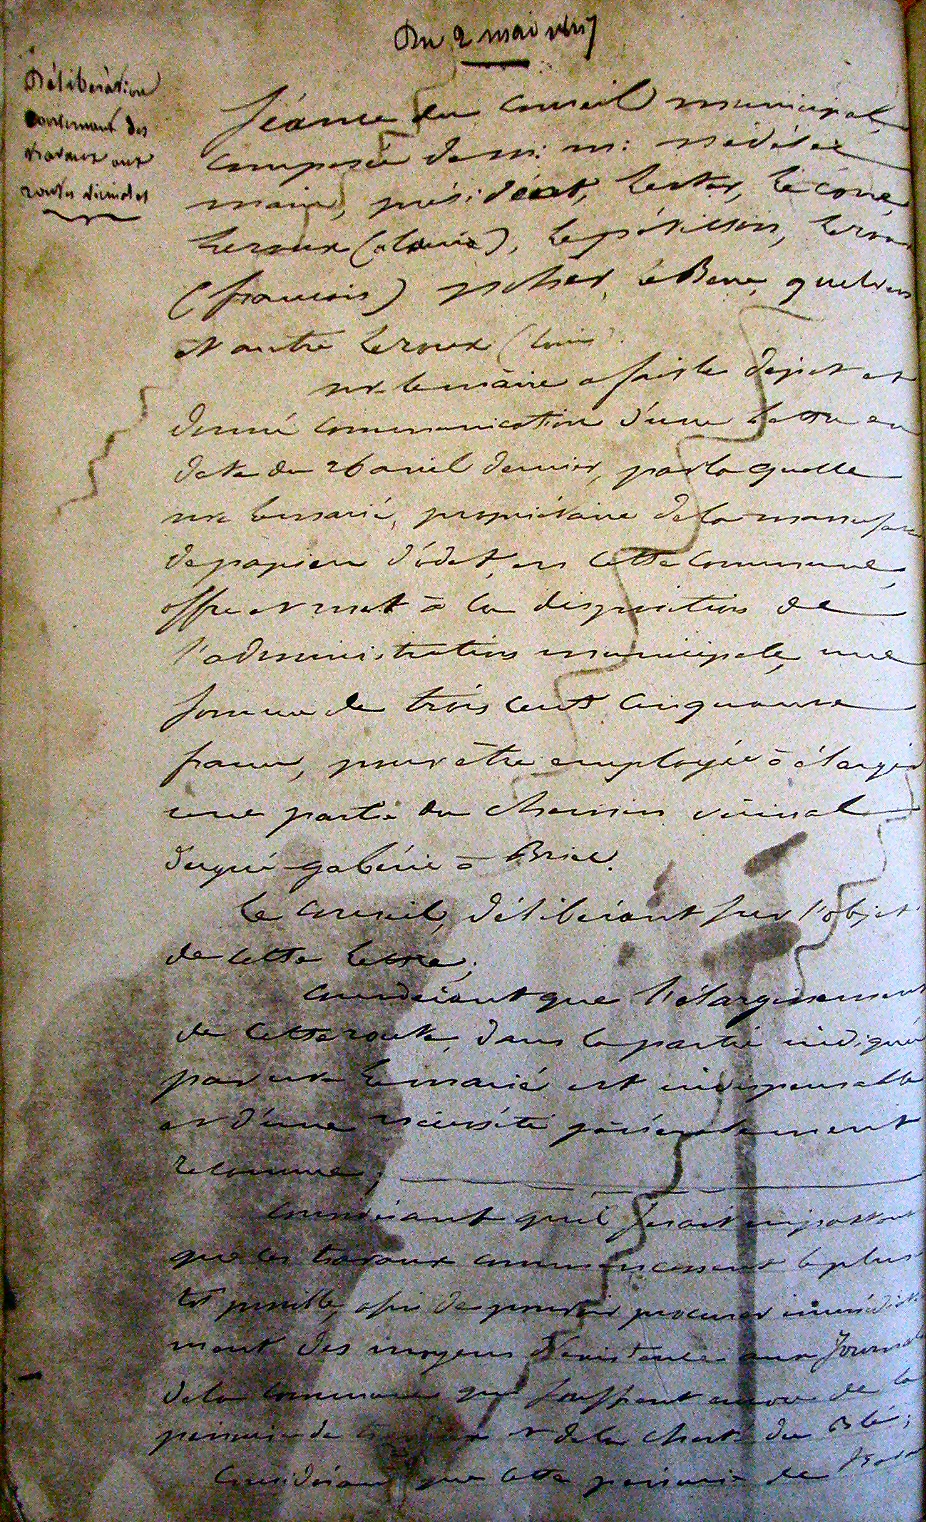 Du 2 mai 1847
Délibération
concernant des
travaux aux
routes vicinales
Séance du conseil municipal,
composée de m: m:
maire, président,
Leroux (alain), Le pétillon, Leroux
(françois)
et autre Leroux (louis).
mr le maire a fait le dépot et
donné communication d'une lettre en
date du 26 avril dernier, par laquelle
mr Lemarié, propriétaire de la manufac
de papiers d'odet, en cette commune,
offre et met à la disposition de
l'administration municipale, une
somme de trois cent cinquante
francs, pour être employée à élargir
une partie du chemin vicinal
d'ergué-gabéric à Briec.
Le conseil, délibérant sur l'objet
de cette lettre;
considérant que l'élargissement
de cette route, dans la partie indiquée
par mr Lemarié est indispensable
et d'une nécessité généralement
reconnue;
considérant qu'il serait important
que ces travaux commencassent le plus
tôt possible, afin de pouvoir procurer immédiate
ment des moyens d'existence aux journal
de la commune qui souffrent encore de la
pénurie de travaux et de la cherté du Blé;
Considérant que cette pénurie de